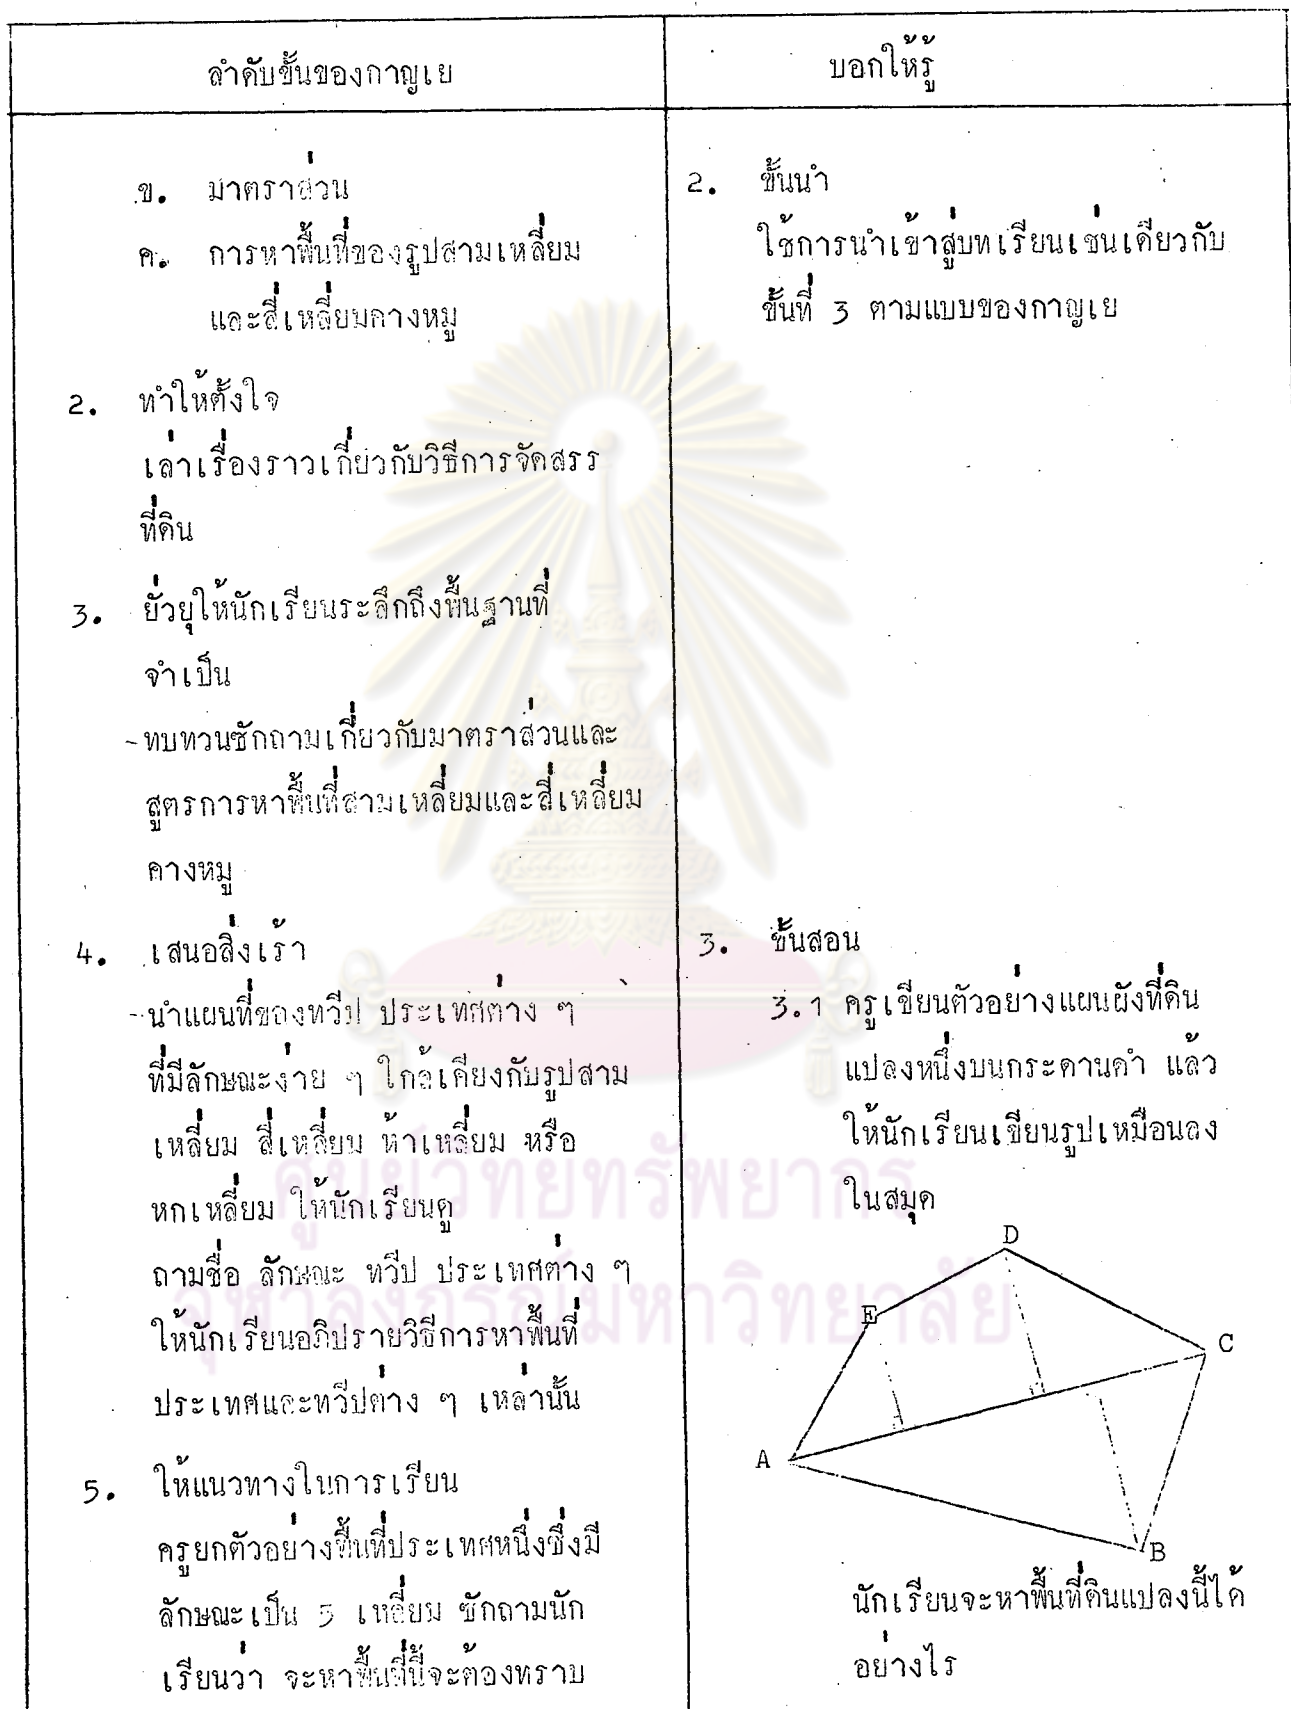 ลำดับขั้นของกาญเย
บอกให้รู้
ข. มาตราส่วน
ค. การหาพื้นที่ของรูปสามเหลี่ยม
และสี่เหลี่ยมคางหมู
2. ทำให้ตั้งใจ
เล่าเรื่องราวเกี่ยวกับวิธีการจัดสรร
ที่ดิน
3. ยั่วยุให้นักเรียนระลึกถึงพื้นฐานที่
จำเป็น
-ทบทวนซักถามเกี่ยวกับมาตราส่วนและ
สูตรการหาพื้นที่สามเหลี่ยมและสี่เหลี่ยม
คางหมู
4. เสนอสิ่งเร้า
-นำแผนที่ของทวีป ประเทศต่าง ๆ
ที่มีลักษณะง่าย ๆ ใกล้เคียงกับรูปสาม
เหลี่ยม สี่เหลี่ยม ห้าเหลี่ยม หรือ
หกเหลี่ยม ให้นักเรียนดู
ถามชื่อ ลักษณะ ทวีป ประเทศต่าง ๆ
ให้นักเรียนอภิปรายวิธีการหาพื้นที่
ประเทศและทวีปต่าง ๆ เหล่านั้น
5. ให้แนวทางในการเรียน
ครูยกตัวอย่างพื้นที่ประเทศหนึ่งซึ่งมี
ลักษณะเป็น 5 เหลี่ยม ซักถามนัก
เรียนว่า จะหาพื้นที่นี้จะต้องทราบ
2. ขั้นนำ
ใช้การนำเข้าสู่บทเรียนเช่นเดียวกับ
ขั้นที่ 3 ตามแบบของกาญเย
3. ขั้นสอน
3.1 ครูเขียนตัวอย่างแผนผังที่ดิน
แปลงหนึ่งบนกระดานดำ แล้ว
ให้นักเรียนเขียนรูปเหมือนลง
ในสมุด
D
E
C
A
B
นักเรียนจะหาพื้นที่ดินแปลงนี้ได้
อย่างไร
ศูนย์วิทยทรัพยากร
จุฬาลงกรณ์มหาวิทยาลัย